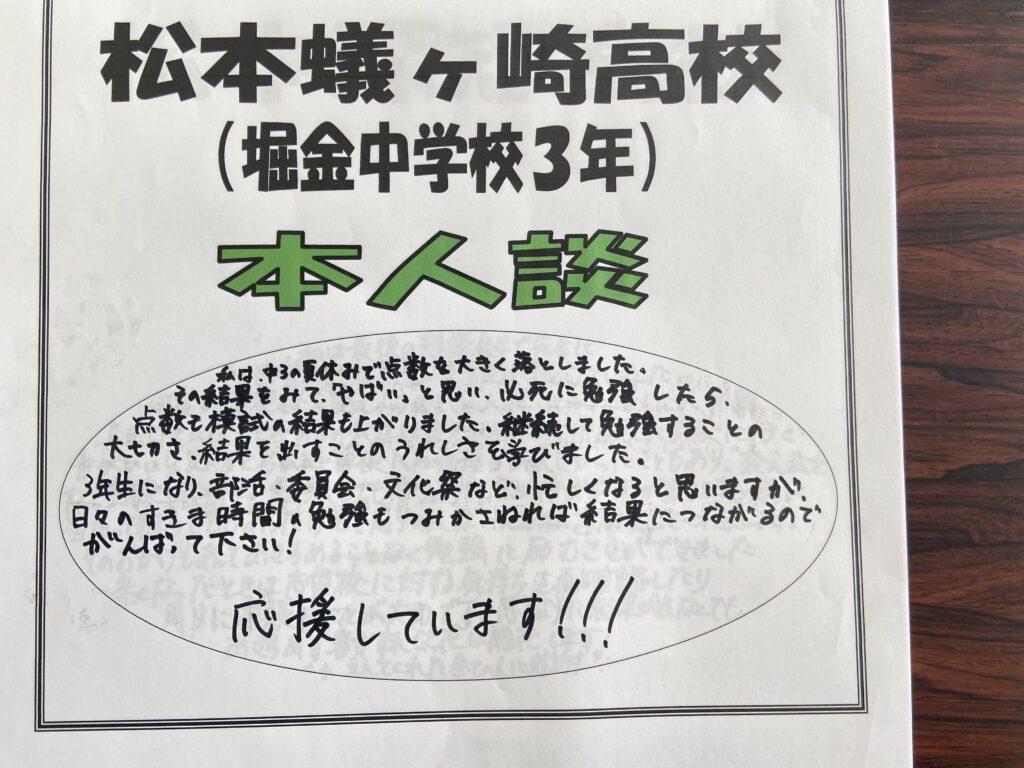 松本蟻ヶ崎高校
(堀金中学校3年)
本人談
私は、中3の夏休みで点数を大きく落としました。
その結果をみて、「やばい」と思い、必死に勉強したら、
点数も模試の結果も上がりました。継続して勉強することの
大切さ、結果を出すことのうれしさを学びました。
3年生になり、部活・委員会・文化祭など、忙しくなると思いますが、
日々のすきま時間の勉強もつみかさねれば結果につながるので
がんばって下さい!
応援しています!!!